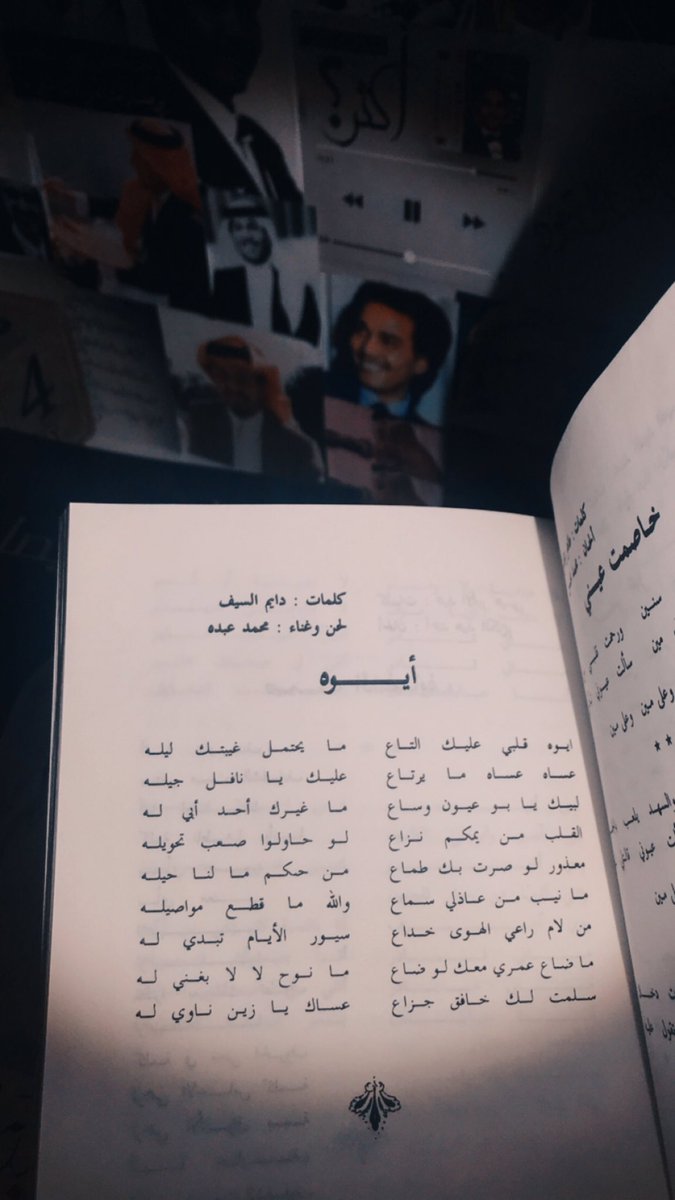 أكثر؟
4
كلمات : دايم السيف
لحن وغناء : محمد عبده
أيـــوه
ايوه قلبي عليك التاع ما يحتمل غيبتك ليله
عساه عساه ما يرتاع عليك يا نافل جيله
لبيك يا بو عيون وساع ما غيرك أحد أبي له
القلب من يمكم نزاع لو حاولوا صعب تحويله
معذور لو صرت بك طماع من حكم ما لنا حيله
ما نيب من عاذلي سماع والله ما قطع مواصيله
من لام راعي الهوى خداع سيور الأيام تبدي له
ما ضاع عمري معك لو ضاع ما نوح لا لا بغني له
سلمت لك خافق جزاع عساك يا زين ناوي له
خاصمت عيني
كلمات :
سنين ورحت
مين سألت
وعلى مين وعلى مين
**
والسهد يلعب
عيوني
مين